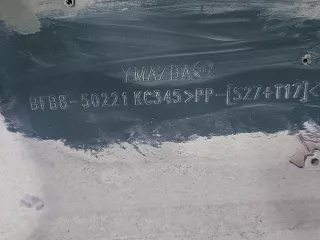 YMAZDA
BFB8-50221 KC345>PP-[S27+T17]<